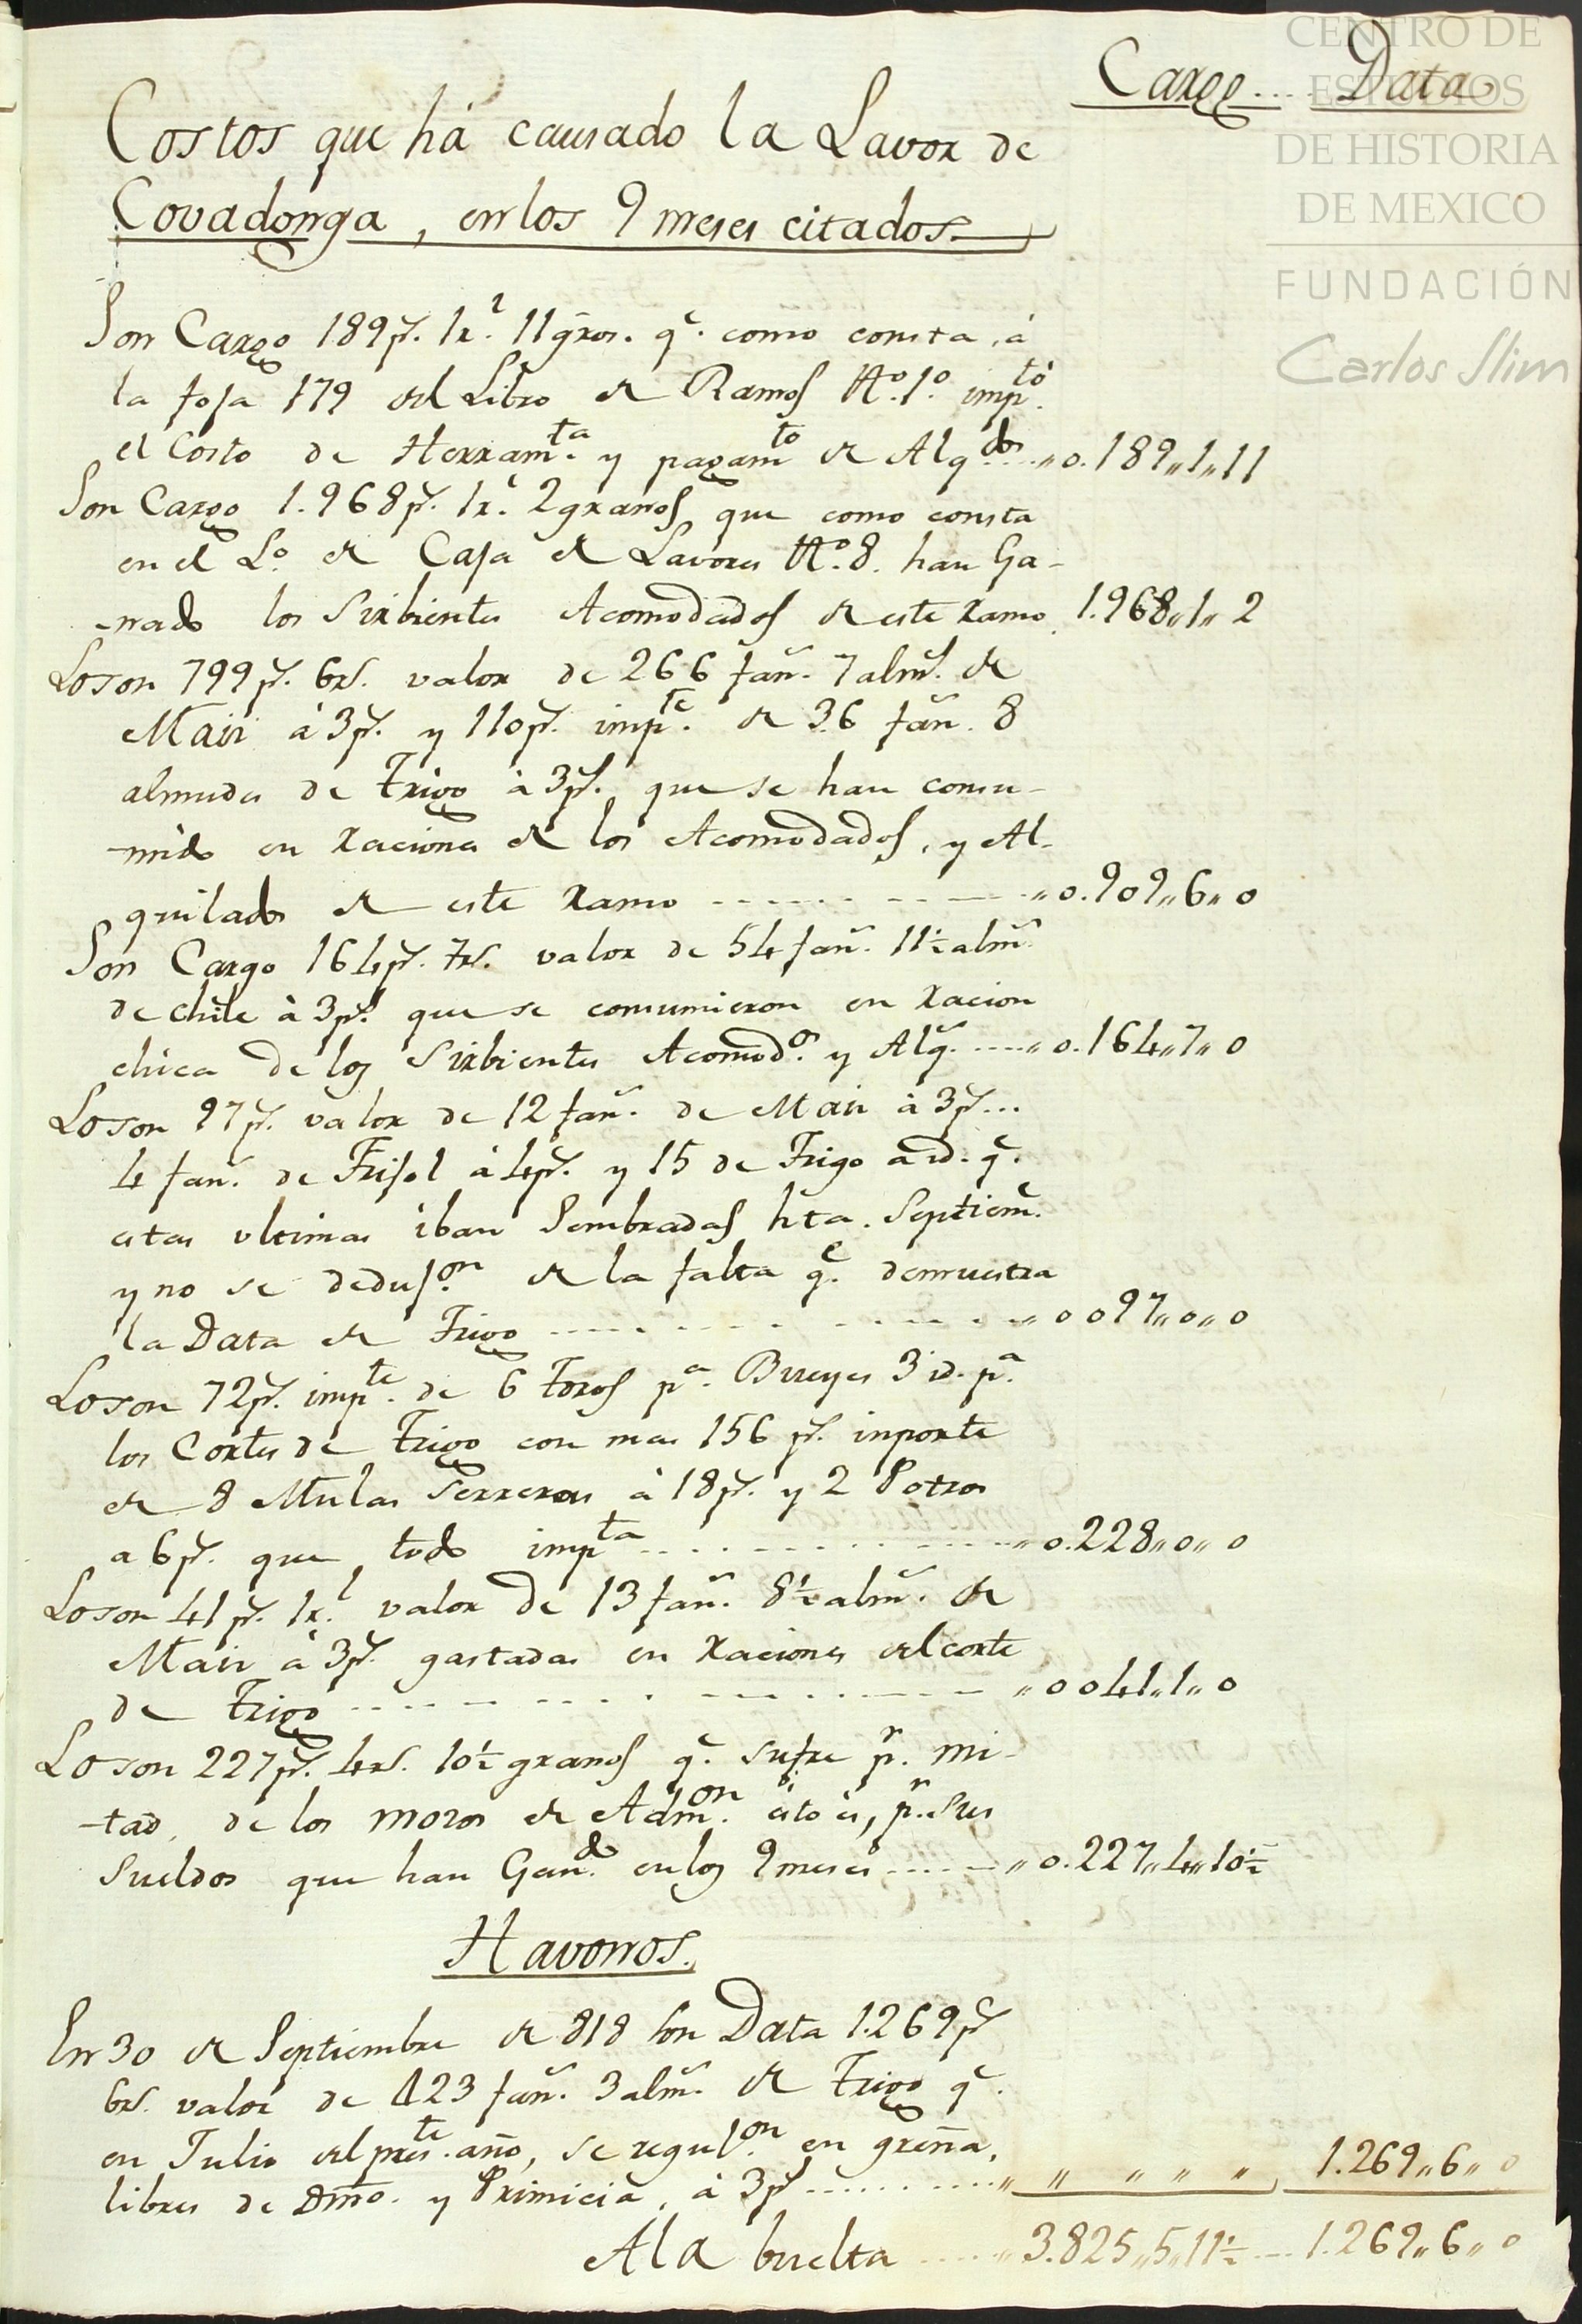 Cargo.... Data.
CENTRO DE
ESTUDIOS
DE HISTORIA
DE MEXICO
FUNDACIÓN
Carlos Slim
Costos que há causado la Lavor de
Covadonga, en los 9 meses citados.
Son Cargo 189 ps. 1 rl. 11 gros. qe. como consta, á
la foja 179 del Libro de Ramos No. 1o. impto.
el Costo de Herramta. y pagamto de Alqdos.... „0.189„1„11
Son Cargo 1.968 ps. 1 rl. 2 granos que como consta
en el Lo. de Caja de Lavores No. 8. han Ga-
-nado los Sirbientes Acomodados de este ramo. 1.968„1„ 2
Loson 799 ps. 6 rs. valor de 266 fans. 7 alms. de
Mais à 3 ps. y 110 ps. impte. de 36 fans. 8
almudes de Trigo à 3 ps. que se han consu-
-mido en raciones de los Acomodados, y Al-
quilados de este ramo ........ „0.909„6„0
Son Cargo 164 ps. 7 rs. valor de 54 fans. 11½ alms.
de chile à 3 ps. que se consumieron en racion
chica de los Sirbientes Acomodos. y Alqs. .... „0.164„7„0
Loson 97 ps. valor de 12 fans. de Mais à 3 ps...
4 fans. de Frisol à 4 ps. y 15 de Trigo a id. qe.
estas ultimas iban Sembradas hta. Septieme.
y no se dedujon. de la falta qe. demuestra
la Data de Trigo ........ „0 097„0„0
Loson 72 ps. impte. de 6 Toros pa. Bueyes 3 id. pa.
los Cortes de Trigo con mas 156 ps. inporte
de 8 Mulas Serreras à 18 ps. y 2 Potros
a 6 ps. que todo impta ........ „0.228„0„0
Loson 41 ps. 1 rl. valor de 13 fans. 8½ alms. de
Mais à 3 ps. gastadas en raciones del corte
de Trigo ........ „0 041„1„0
Loson 227 ps. 4 rs. 10½ granos qe. sufre pr. mi-
-tad, de los mozos de Admon. esto es, pr. sus
Sueldos que han Gando. en los 9 meses ...... „0.227„4„10½
Havonos.
En 30 de Septiembre de 818 son Data 1.269 ps
6 rs. valor de 423 fans. 3 alms. de Trigo qe.
en Julio del preste. año, se regulon. en greña,
libres de Dmo. y Primicia, à 3 ps ........ „ „ „ „ „ 1.269„6„0
Ala buelta .... „3.825„5„11½ ... 1.269„6„0